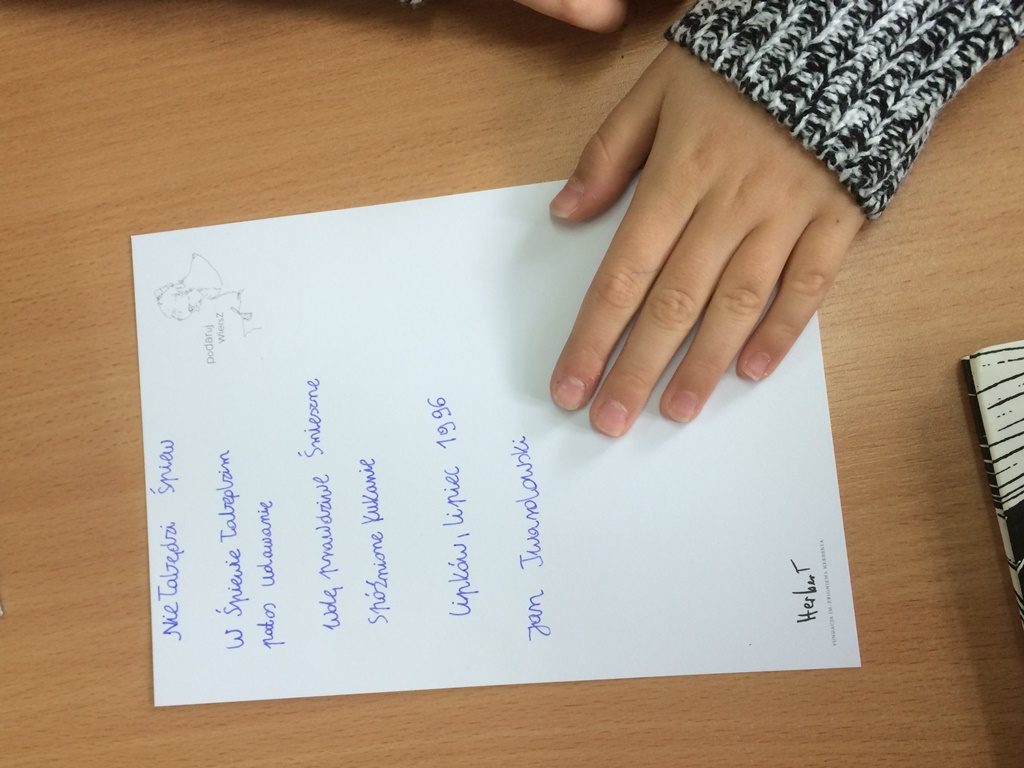 podaruj
wiersz
Nie Łabędzi Śpiew
W Śpiewie Łabędzim
patos Udawanie
Wolę prawdziwe Śmieszne
Spóźnione Kukanie
Lipków, Lipiec 1996
Jan Twardowski
HerberT
FUNDACJA IM. ZBIGNIEWA HERBERTA